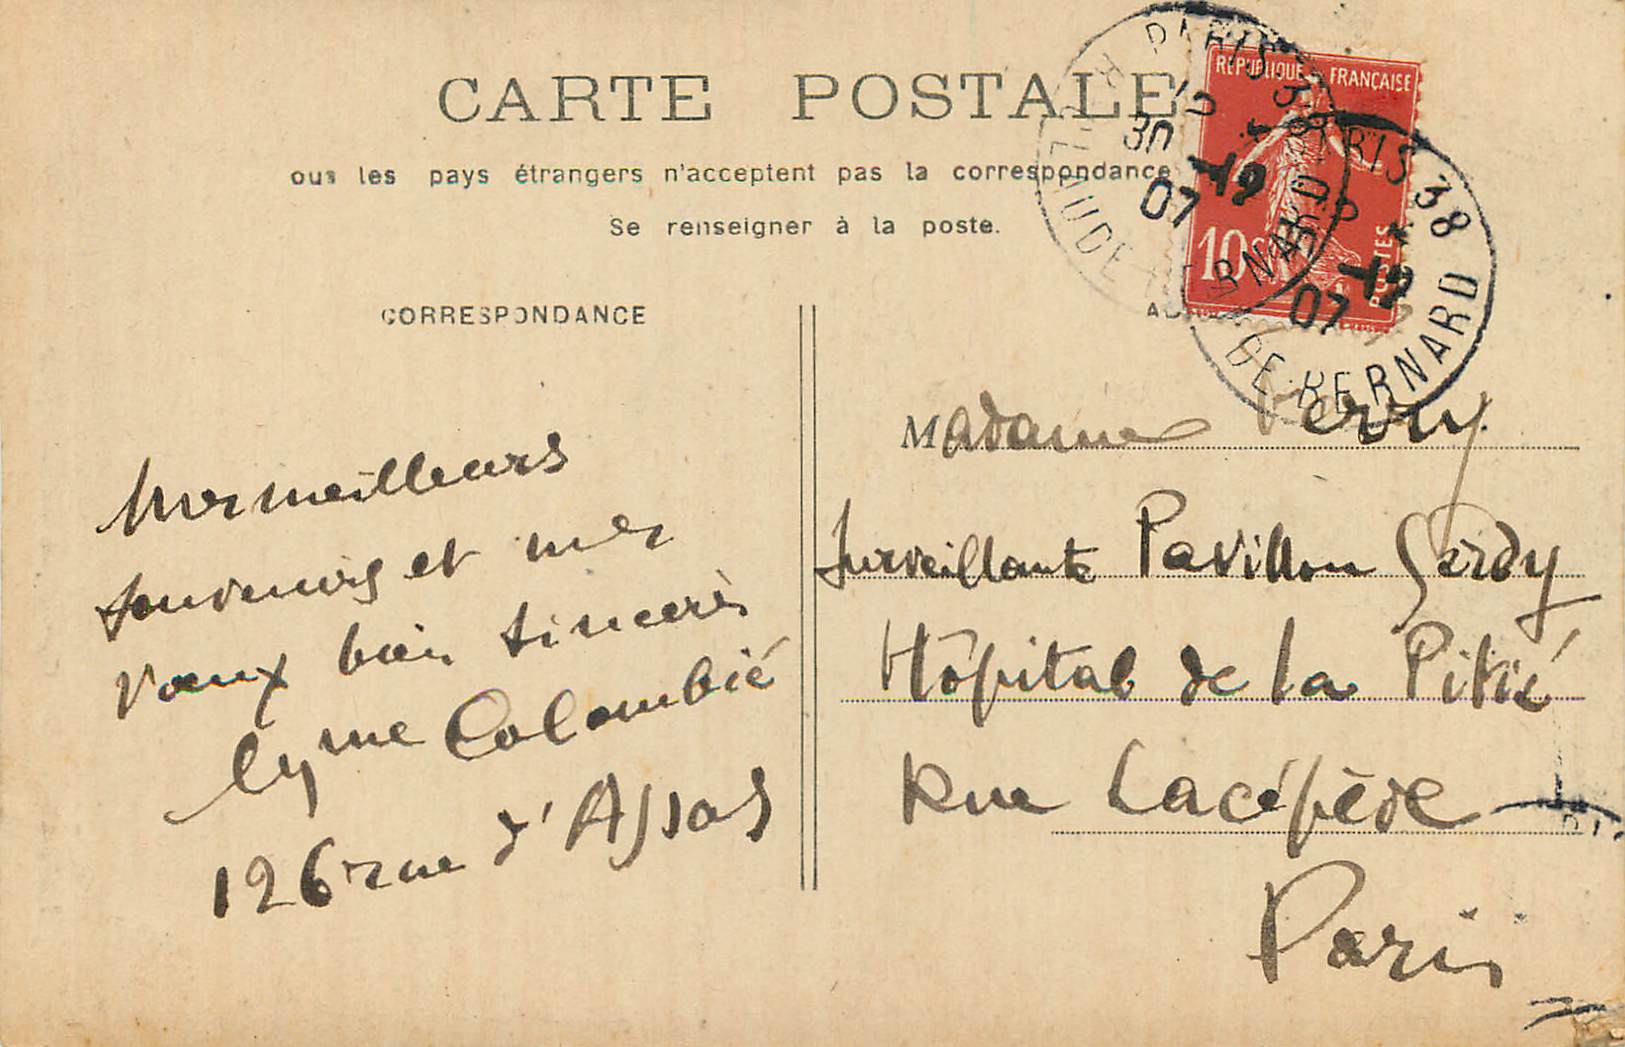 CARTE POSTALE
ous les pays étrangers n'acceptent pas la correspondance
Se renseigner à la poste.
CORRESPONDANCE
Mes meilleurs
souvenirs et mes
vœux bien sincères
me Colombié
126 rue d'Assas
RÉPUBLIQUE FRANÇAISE
10c
POSTES
PARIS 38
30 -12
07
R. CLAUDE BERNARD
PARIS 38
-12
07
DE-BERNARD
Madame
Surveillante Pavillon Gerdy
Hôpital de la Pitié
Rue Lacépède
Paris